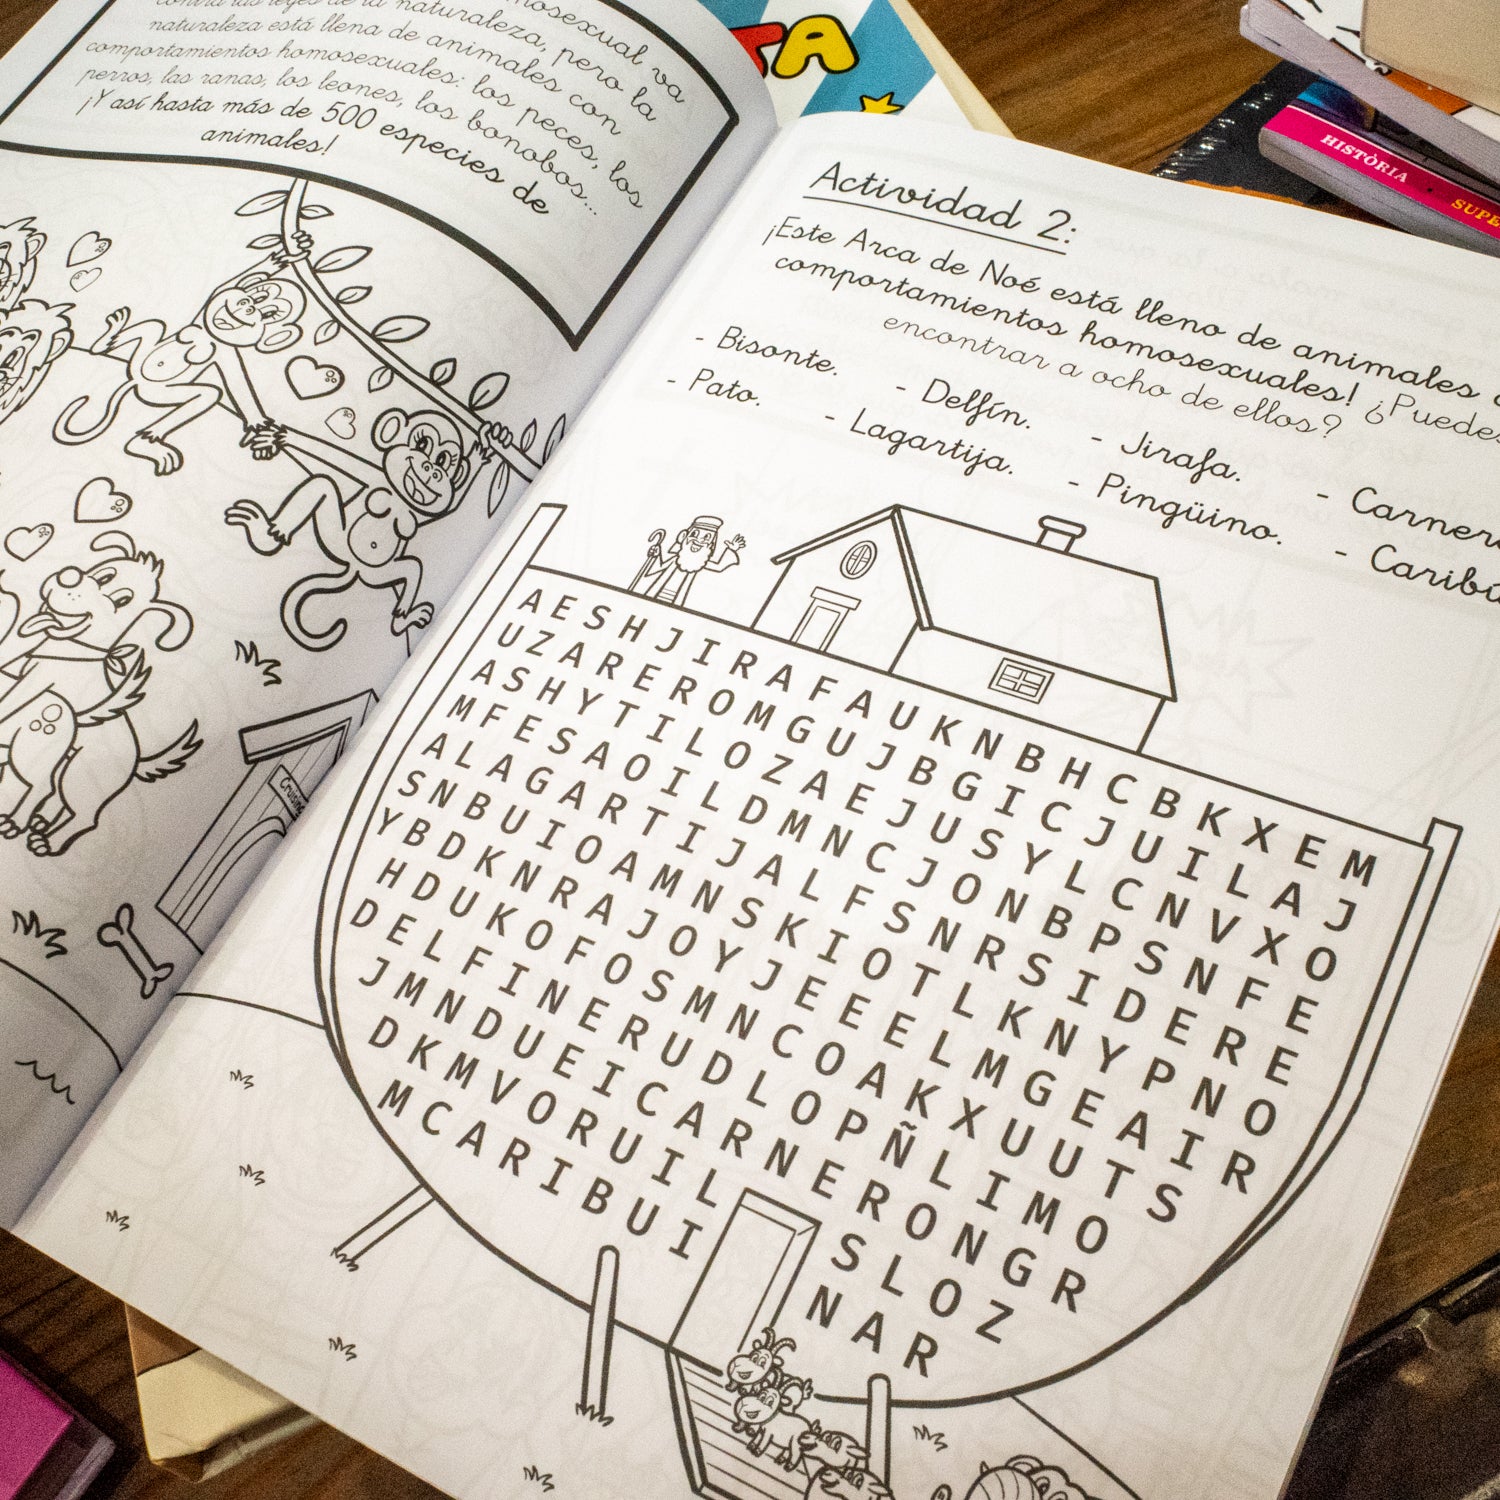 homosexual va
contra las leyes de la naturaleza, pero la
naturaleza está llena de animales con
comportamientos homosexuales: los peces, los
perros, las ranas, los leones, los bonobos...
¡Y así hasta más de 500 especies de
animales!
TA
HISTÒRIA
Actividad 2:
¡Este Arca de Noé está lleno de animales
comportamientos homosexuales! ¿Puedes
encontrar a ocho de ellos?
- Bisonte. - Delfín. - Jirafa. - Carnero
- Pato. - Lagartija. - Pingüino. - Caribú
A E S H J I R A F A U K N B H C B K X E M
U Z A R E R O M G U J B G I C J U I L A J
A S H Y T I L O Z A E J U S Y L C N V X O
M F E S A O I L D M N C J O N B P S N F E
A L A G A R T I J A L F S N R S I D E R E
S N B U I O A M N S K I O T L K N Y P N O
Y B D K N R A J O Y J E E E L M G E A I R
H D U K O F O S M N C O A K X U U T S
D E L F I N E R U D L O P Ñ L I M O
J M N D U E I C A R N E R O N G R
D K M V O R U I L S L O Z
M C A R I B U I N A R